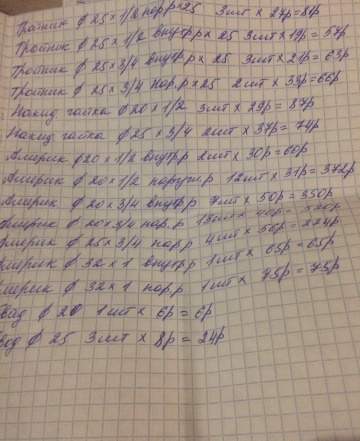 Тройник ф 25 х 1/2 нар.р х 25 3шт х 27р = 81р
Тройник ф 25 х 1/2 внутр.р х 25 3шт х 19р = 57р
Тройник ф 25 х 3/4 внутр.р х 25 3шт х 21р = 63р
Тройник ф 25 х 3/4 нар.р х 25 2шт х 33р = 66р
Накид гайка ф 20 х 1/2 3шт х 29р = 87р
Накид гайка ф 25 х 3/4 2шт х 37р = 74р
Америк ф 20 х 1/2 внутр.р 2шт х 30р = 60р
Америк ф 20 х 1/2 наружн.р 12шт х 31р = 372р
Америк ф 20 х 3/4 внутр.р 7шт х 50р = 350р
Америк ф 20 х 3/4 нар.р
мерик ф 25 х 3/4 нар.р 4шт х 56р = 224р
мерик ф 32 х 1 внутр.р 1шт х 65р = 65р
мерик ф 32 х 1 нар.р 1шт х 75р = 75р
вод ф 20 1шт х 6р = 6р
вод ф 25 3шт х 8р = 24р